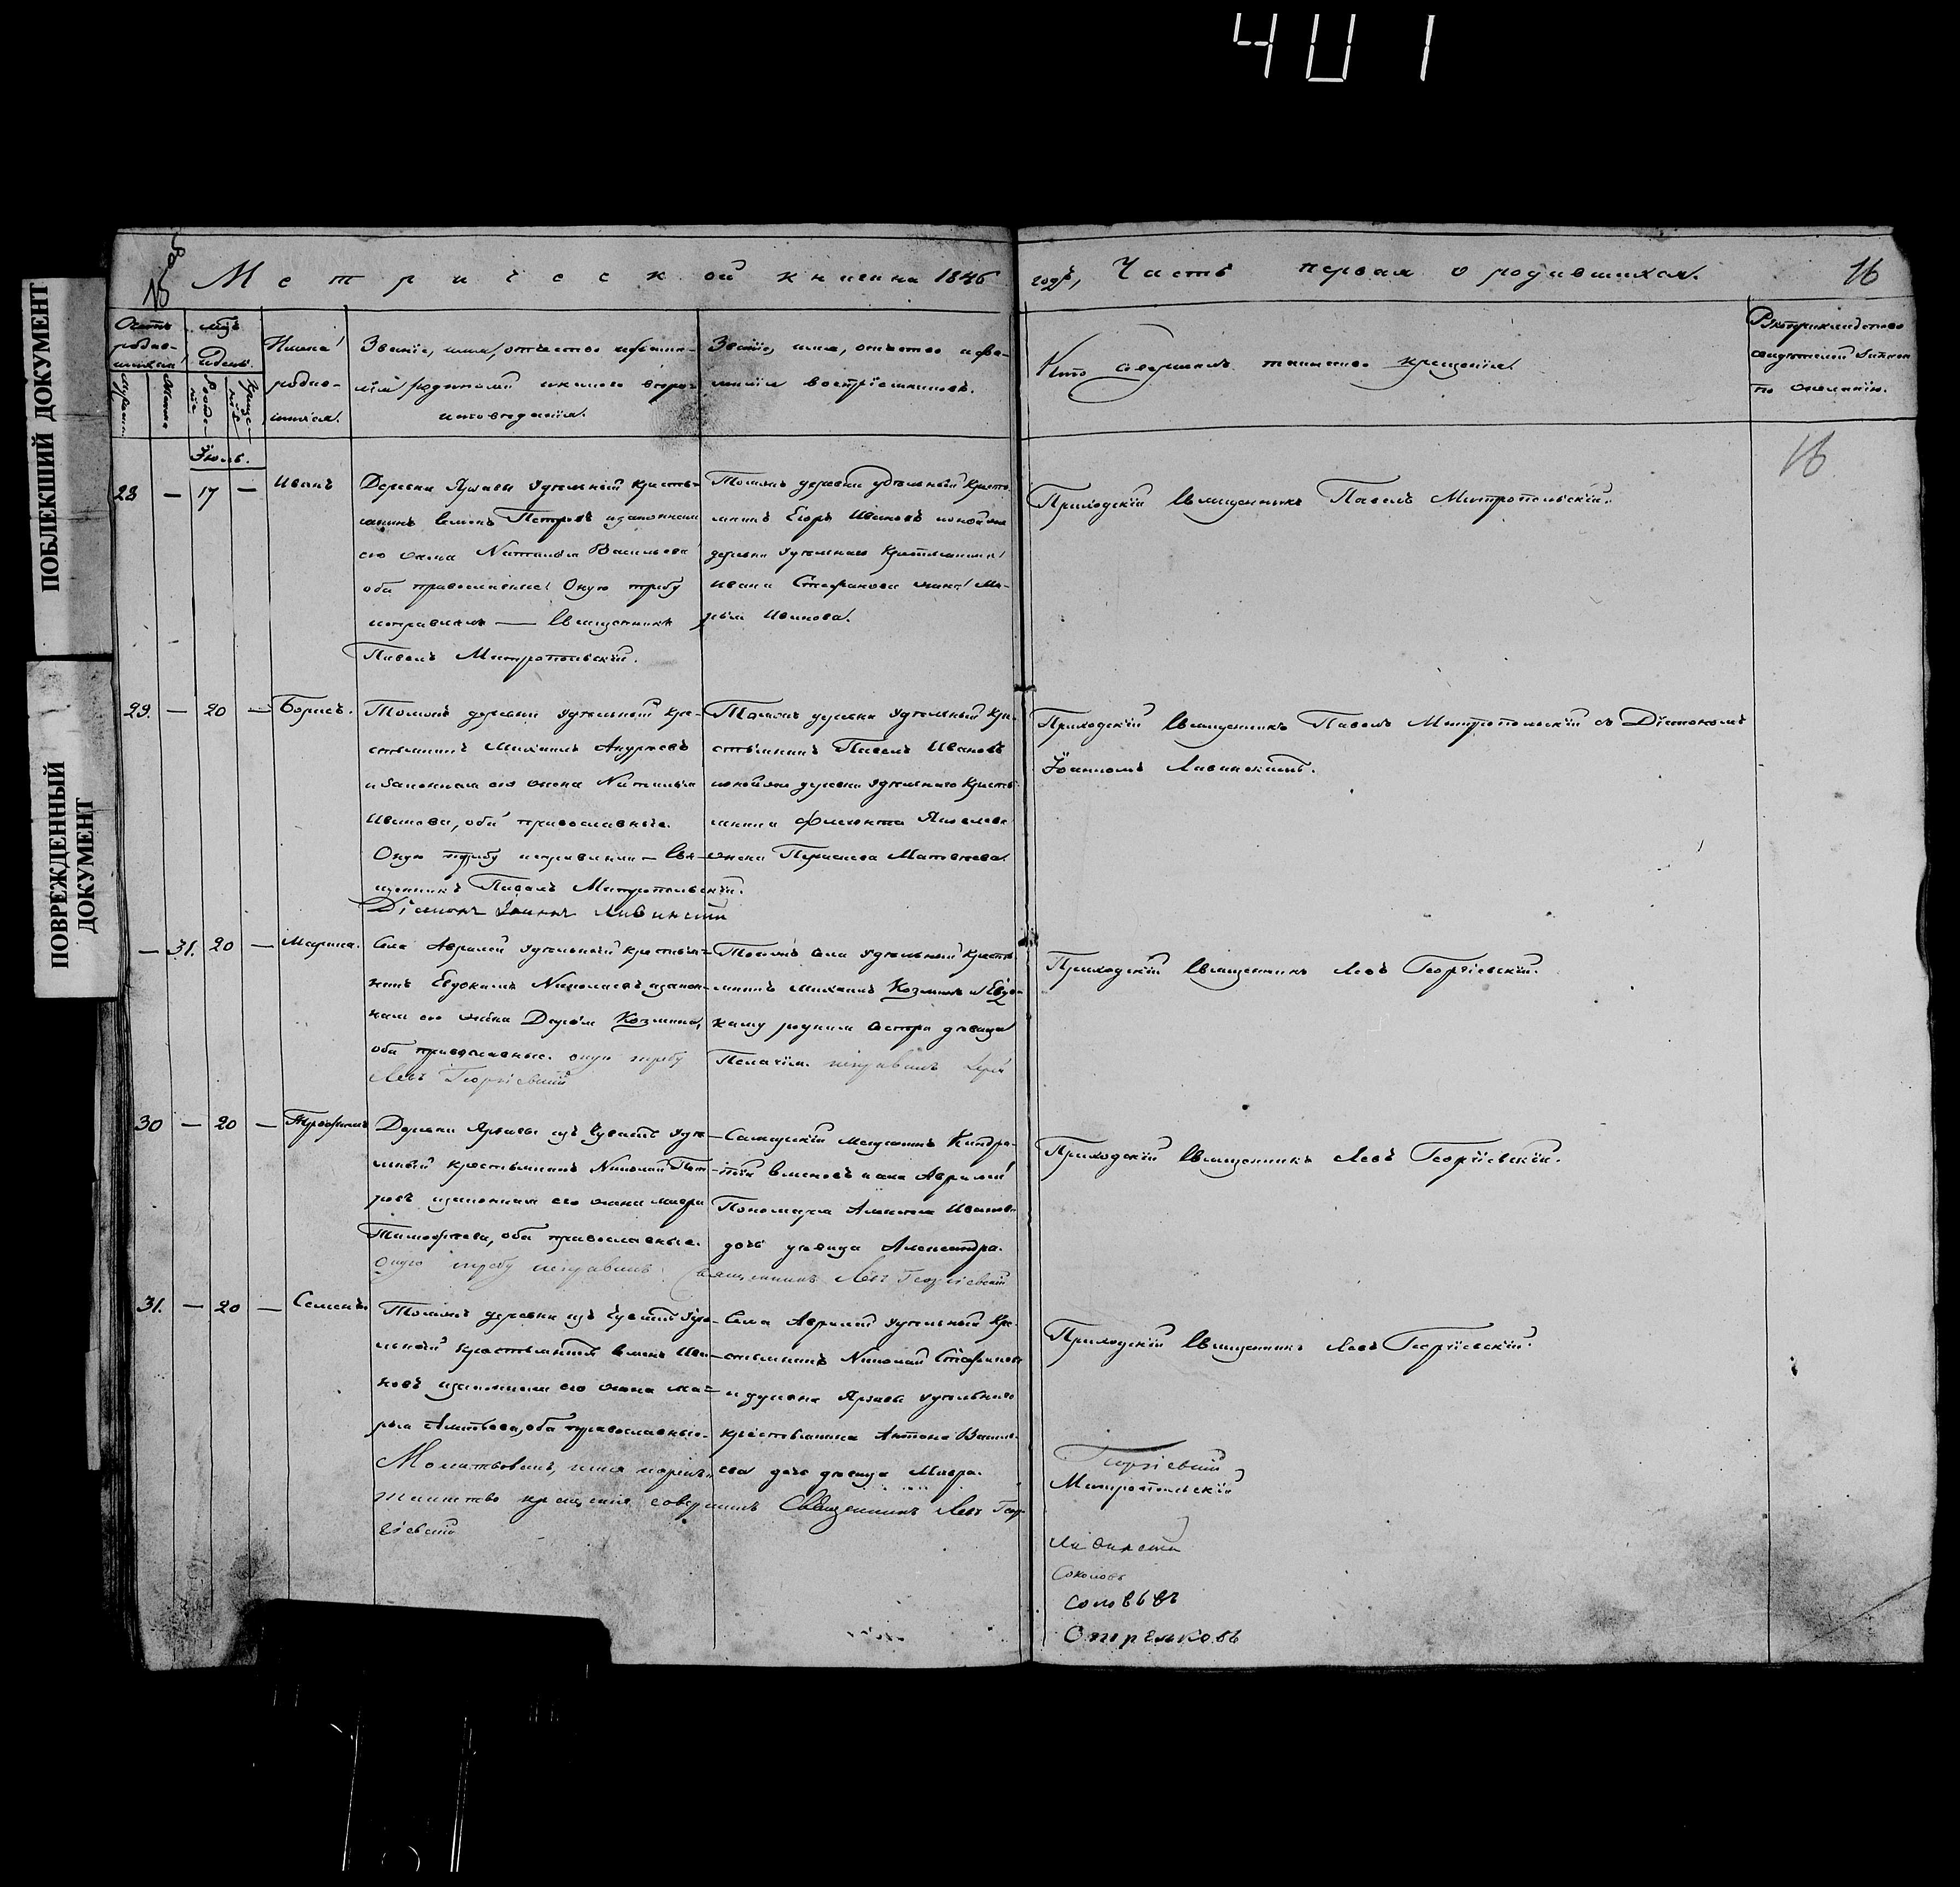 401
ПОБЛЕКШИЙ ДОКУМЕНТ
ПОВРЕЖДЕННЫЙ
ДОКУМЕНТ
15
Метрической книги на 1846
годъ, Часть первая о родившихся.
16
Счетъ родив-
шихся
Мужеска
Женска
Мцъ
и день.
Рожде-
нія
Креще-
нія
Имена
родив-
шихся.
Званіе, имя, отчество и фами-
лія родителей и какого вѣро-
исповѣданія.
Званіе, имя, отчество и фа-
милія воспріемниковъ.
Кто совершалъ таинство крещенія.
Рукоприкладство
свидѣтелей записи
по желанію.
Іюль.
16
28 — 17 —
Иванъ
Деревни Аржаевы удѣльный кресть-
янинъ Семенъ Петровъ и законная
его жена Наталья Васильева
оба православные. Оную требу
исправлялъ — Священникъ
Павелъ Митропольскій.
Тоей жъ деревни удѣльный кресть-
янинъ Егоръ Ивановъ и той же
деревни удѣльнаго крестьянина
Ивана Стефанова жена Ма-
рья Иванова.
Приходскій Священникъ Павелъ Митропольскій.
29. — 20 —
Борисъ.
Тоей жъ деревни удѣльный кре-
стьянинъ Михаилъ Андреевъ
и законная его жена Наталья
Иванова, оба православные.
Оную требу исправляли — Свя-
щенникъ Павелъ Митропольскій.
Діаконъ Іоаннъ Ливинскій
Тоей жъ деревни удѣльный кре-
стьянинъ Павелъ Ивановъ
и той же деревни удѣльнаго кресть-
янина
жена Матвеева.
Приходскій Священникъ Павелъ Митропольскій съ Діакономъ
Іоанномъ Ливинскимъ.
— 31. 20 —
Марина.
Села Аврамей удѣльный крестья-
нинъ Евдокимъ Николаевъ и закон-
ная его жена Дарья Козмина,
оба православные. оную требу
Левъ Георгіевскій
Того жъ села удѣльный кресть-
янинъ Михаилъ Козминъ и Евдо-
киму родная сестра дѣвица
Пелагія. исправилъ Іерей
Приходскій Священникъ Левъ Георгіевскій.
30 — 20 —
Трофимъ
Деревни Аржаевы изъ Чувашъ удѣ-
льный крестьянинъ Николай Пет-
ровъ и законная его жена Мавра
Тимофеева, оба православные.
оную требу исправилъ Священникъ Левъ Георгіевскій
Семеновъ и села Аврамей
Пономаря Алексея Иванова
дочь дѣвица Александра.
Приходскій Священникъ Левъ Георгіевскій.
31. — 20 —
Семенъ
Тоей жъ деревни изъ Чувашъ удѣ-
льный крестьянинъ Семенъ Ива-
новъ и законная его жена Ма-
рья оба православные.
Молитвовалъ, имя нарекъ,
таинство крещенія совершилъ Священникъ Левъ Геор-
гіевскій
Села Аврамей удѣльный кре-
стьянинъ Николай Стефановъ
и деревни Аржаевы удѣльнаго
крестьянина Антона Василь-
ева дочь дѣвица Мавра.
Приходскій Священникъ Левъ Георгіевскій.
Георгіевскій
Митропольскій
Ливинскій
Соколовъ
Соловьвъ
Стрелковъ